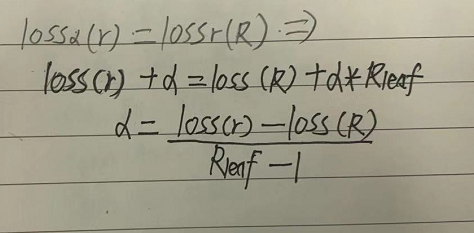 lossα(r) = lossr(R) ⇒
loss(r) + α = loss(R) + α * Rleaf
α = loss(r) - loss(R)
Rleaf - 1